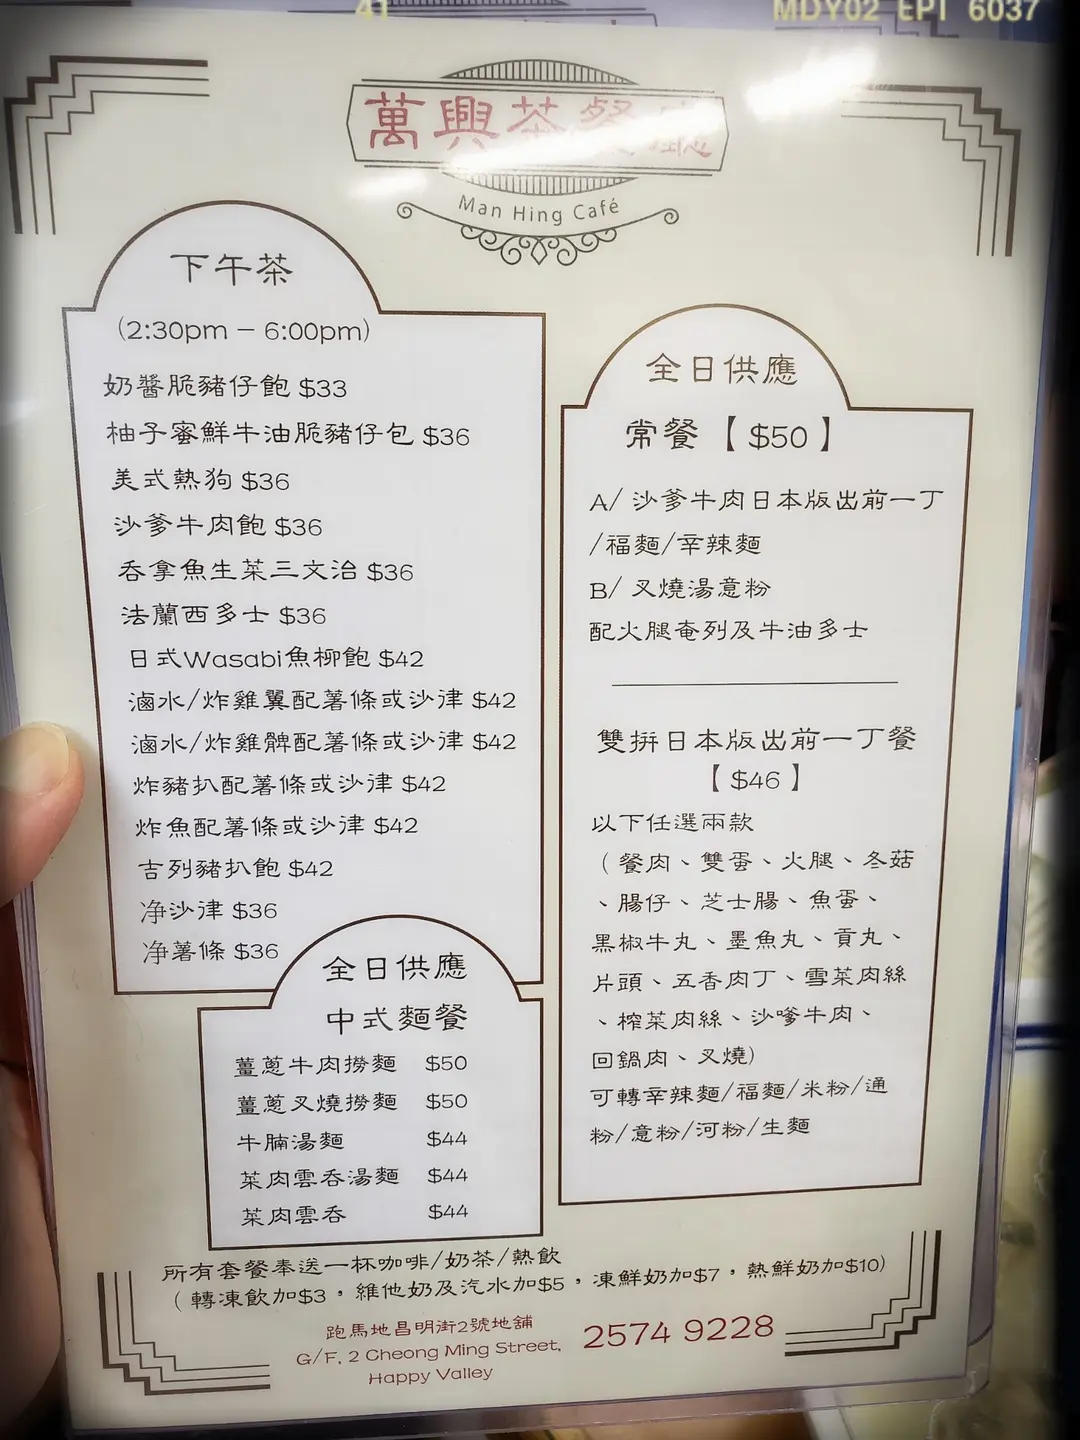 41
MDY02 EPI 6037
萬興茶餐廳
Man Hing Café
下午茶
(2:30pm – 6:00pm)
奶醬脆豬仔飽 $33
柚子蜜鮮牛油脆豬仔包 $36
美式熱狗 $36
沙爹牛肉飽 $36
吞拿魚生菜三文治 $36
法蘭西多士 $36
日式Wasabi魚柳飽 $42
滷水/炸雞翼配薯條或沙律 $42
滷水/炸雞髀配薯條或沙律 $42
炸豬扒配薯條或沙律 $42
炸魚配薯條或沙律 $42
吉列豬扒飽 $42
净沙律 $36
净薯條 $36
全日供應
中式麵餐
薑蔥牛肉撈麵 $50
薑蔥叉燒撈麵 $50
牛腩湯麵 $44
菜肉雲吞湯麵 $44
菜肉雲吞 $44
全日供應
常餐【$50】
A/ 沙爹牛肉日本版出前一丁
/福麵/辛辣麵
B/ 叉燒湯意粉
配火腿奄列及牛油多士
雙拼日本版出前一丁餐
【$46】
以下任選兩款
（餐肉、雙蛋、火腿、冬菇
、腸仔、芝士腸、魚蛋、
黑椒牛丸、墨魚丸、貢丸、
片頭、五香肉丁、雪菜肉絲
、榨菜肉絲、沙嗲牛肉、
回鍋肉、叉燒)
可轉辛辣麵/福麵/米粉/通
粉/意粉/河粉/生麵
所有套餐奉送一杯咖啡/奶茶/熱飲
（轉凍飲加$3，維他奶及汽水加$5，凍鮮奶加$7，熱鮮奶加$10)
跑馬地昌明街2號地舖
G/F, 2 Cheong Ming Street,
Happy Valley
2574 9228